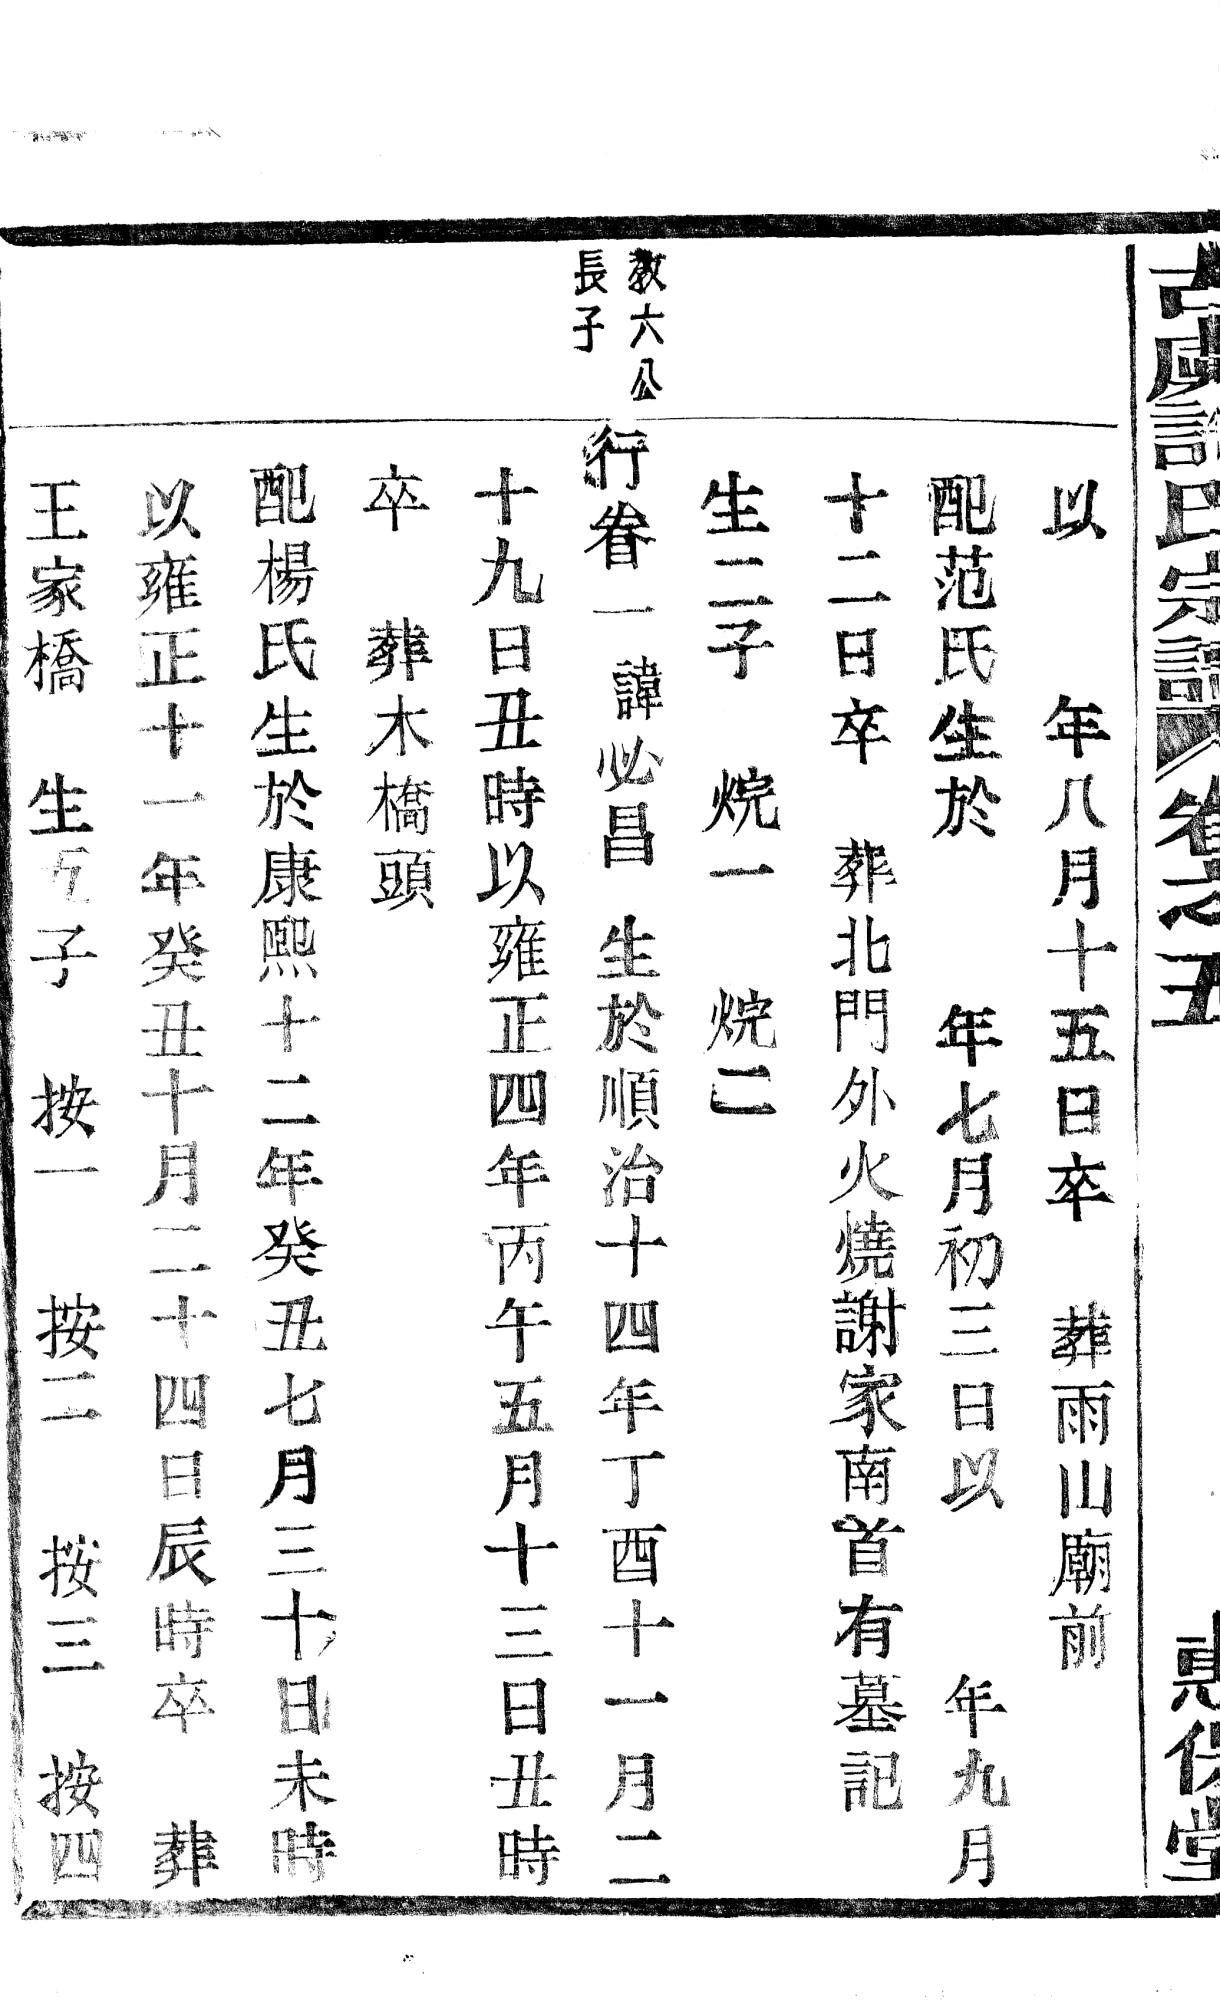 古虞謝氏宗譜 卷之五 惠保堂
以 年八月十五日卒 葬雨山廟前
配范氏生於 年七月初三日以 年九月
十二日卒 葬北門外火燒謝家南首有墓記
生二子 烷一 烷二
教六公
長子
行眷一 諱必昌 生於順治十四年丁酉十一月二
十九日丑時以雍正四年丙午五月十三日丑時
卒 葬木橋頭
配楊氏生於康熙十二年癸丑七月三十日未時
以雍正十一年癸丑十月二十四日辰時卒 葬
王家橋 生五子 按一 按二 按三 按四